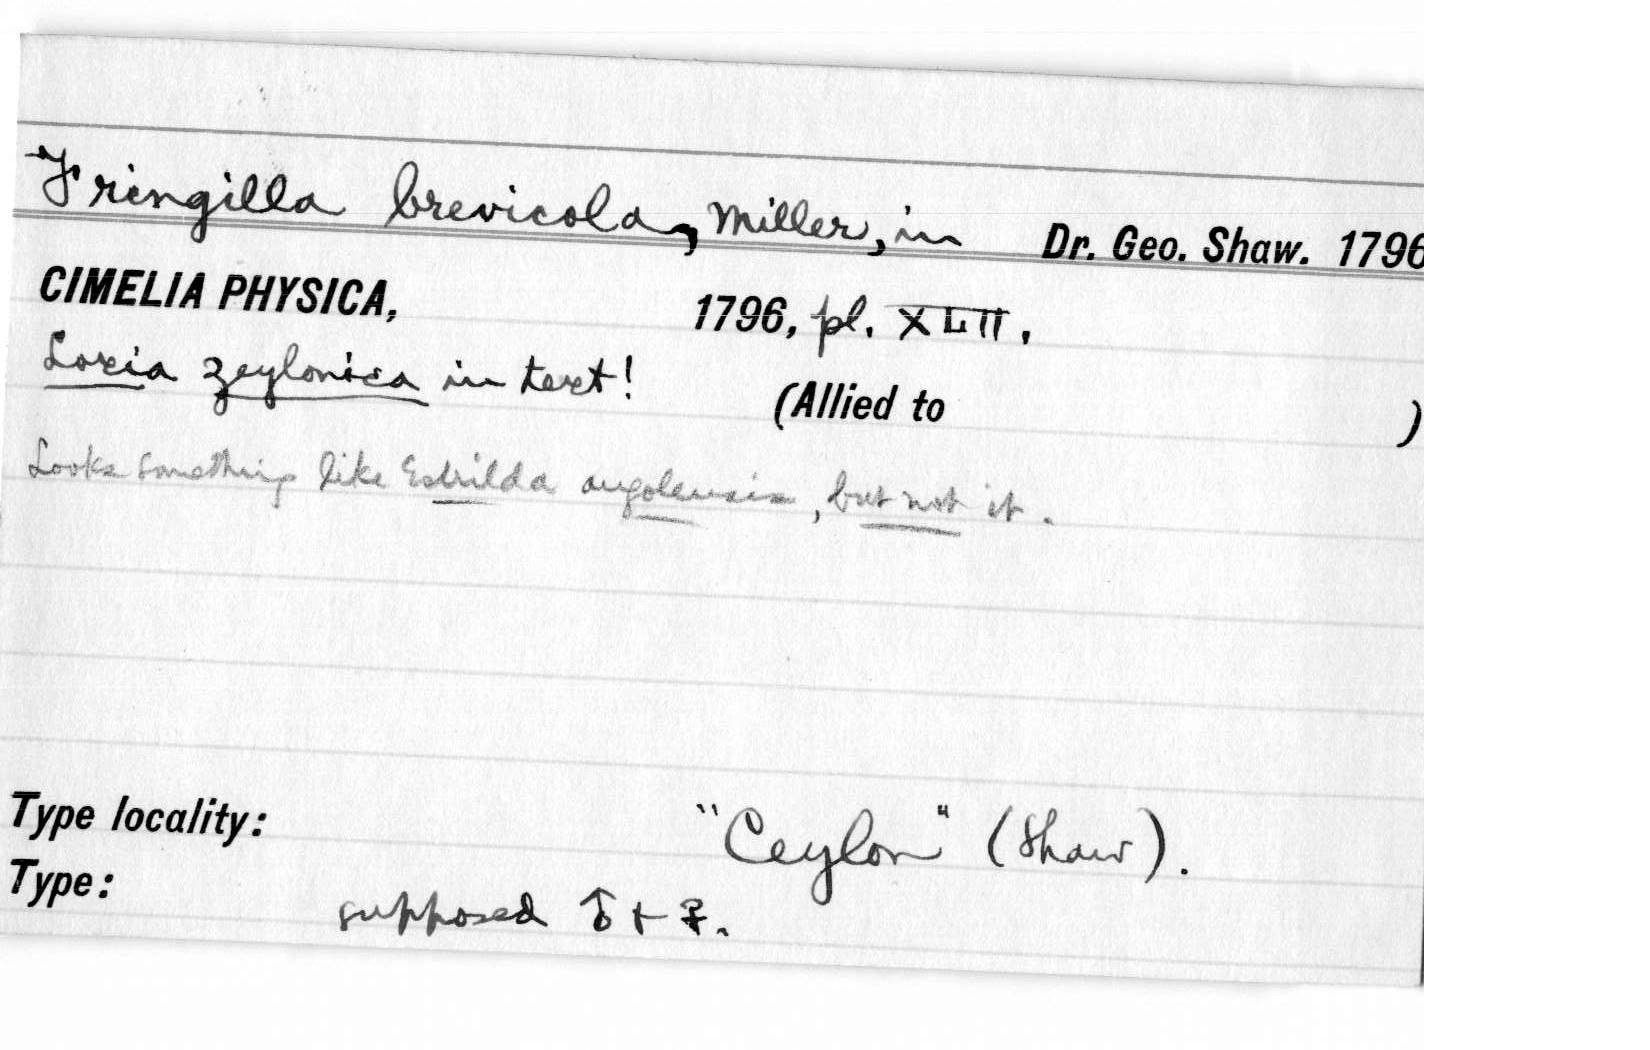 Fringilla brevicola, Miller, in Dr. Geo. Shaw. 1796
CIMELIA PHYSICA, 1796, pl. XLII.
Loxia zeylonica in text!
(Allied to )
Looks something like Estrilda angolensis, but not it.
Type locality: "Ceylon" (Shaw).
Type: supposed ♂ + ♀.